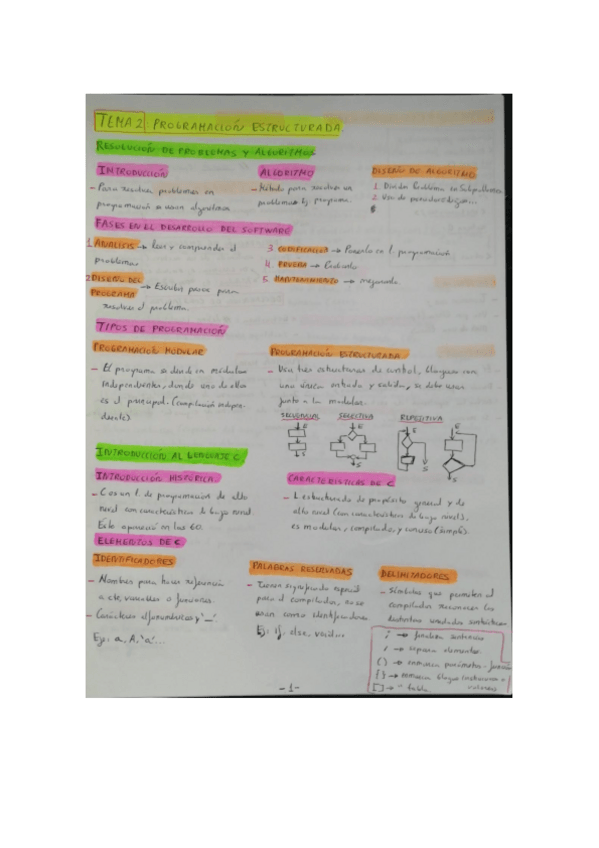 TEMA 2: PROGRAMACIÓN ESTRUCTURADA.
RESOLUCIÓN DE PROBLEMAS Y ALGORITMOS
INTRODUCCIÓN
- Para resolver problemas en
programación se usan algoritmos
ALGORITMO
- Método para resolver un
problema. Ej programa.
DISEÑO DE ALGORITMO
1. Dividir Problema en Subproblemas
2. Uso de pseudocódigo...
FASES EN EL DESARROLLO DEL SOFTWARE
1. ANÁLISIS → Leer y comprender el
problema.
2. DISEÑO DEL
PROGRAMA → Escribir pasos para
resolver el problema.
3. CODIFICACIÓN → Pasarlo a l. programación
4. PRUEBA →
5. MANTENIMIENTO → mejorarlo
TIPOS DE PROGRAMACIÓN
PROGRAMACIÓN MODULAR
- El programa se divide en módulos
independientes, donde uno de ellos
es el principal. (compilación indepen-
diente)
PROGRAMACIÓN ESTRUCTURADA
- Usa tres estructuras de control, bloques con
una única entrada y salida, se debe usar
junto a la modular.
SECUENCIAL
SELECTIVA
REPETITIVA
E
S
E
S
E
S
E
S
INTRODUCCIÓN AL LENGUAJE C.
INTRODUCCIÓN HISTÓRICA
- C es un l. de programación de alto
nivel con características de bajo nivel.
Este apareció en los 60.
CARACTERÍSTICAS DE C
- L estructurado de propósito general y de
alto nivel (con características de bajo nivel),
es modular, compilado, y conciso (simple).
ELEMENTOS DE C
IDENTIFICADORES
- Nombres para hacer referencia
a cte, variables o funciones.
- Carácteres alfanuméricos y '_'.
Ej: a, A, 'a'...
PALABRAS RESERVADAS
- Tienen significado especial
para el compilador, no se
usan como identificadores
Ej: if, else, void...
DELIMITADORES
- Símbolos que permiten al
compilador reconocer las
distintas unidades sintácticas
; → finalizar sentencias
, → separa elementos.
( ) → enmarca parámetros - función
{ } → enmarca bloque instrucciones o
valores
[ ] → " tabla
- 1 -